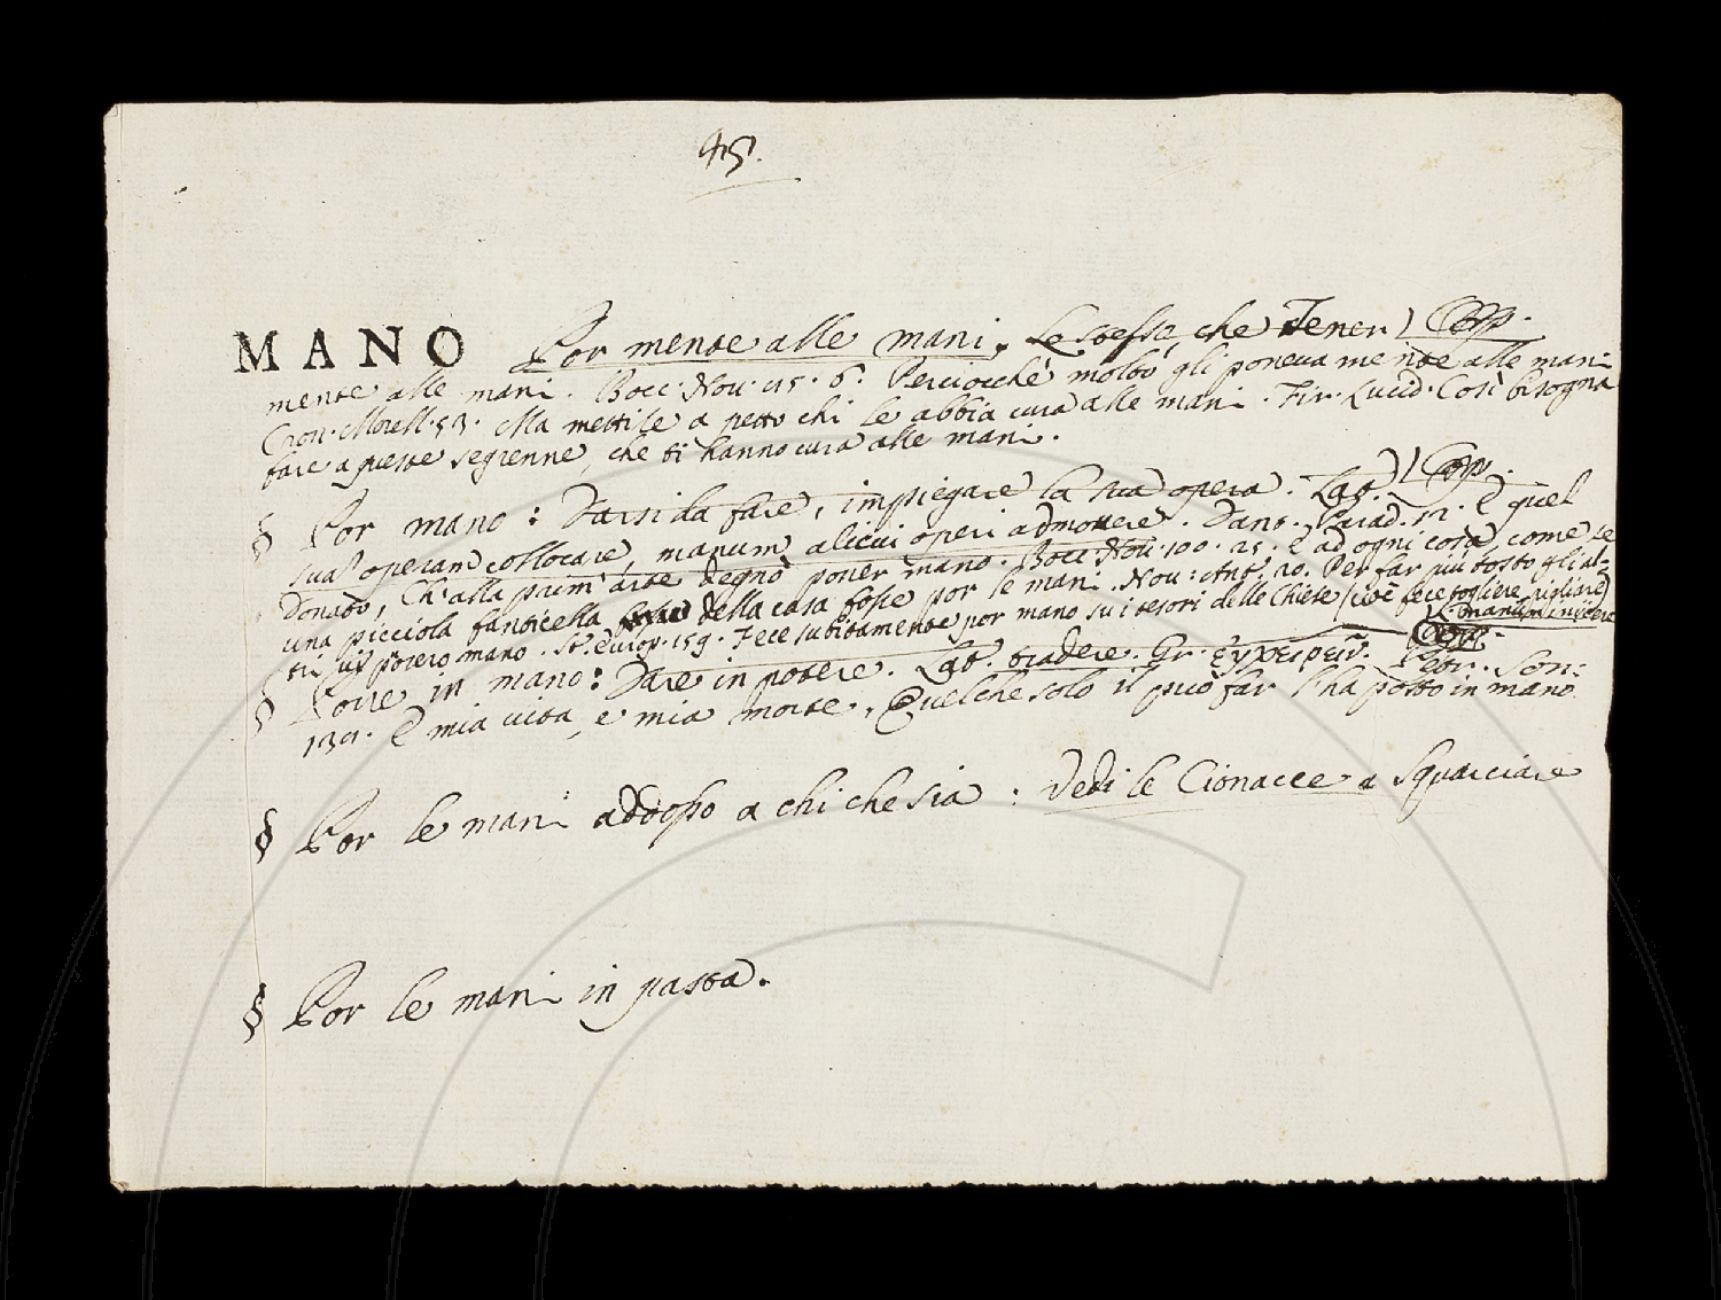 45.
MANO Por mente alle mani. Lo stesso, che Tener
mente alle mani. Bocc. Nov. 45. 6. Perciocchè molto gli poneva mente alle mani
Cron. Morell. 53. Ma mettile a petto chi le abbia cura alle mani. Fir. Lucid. Così bisogna
fare a queste segrenne, che ti hanno cura alle mani.
§ Por mano: Darsi da fare, impiegare la sua opera. Lat.
sua operam collocare, manum alicui operi admovere. Dant. Parad. 12. E quel
Donato, Ch' alla prim' arte degnò poner mano. Bocc. Nov. 100. 25. E ad ogni cosa, come se
una picciola fanticella della casa fosse por le mani. Nov: Ant. 20. Per far più tosto gli al-
tri vi posero mano. St. Europ. 159. Fece subitamente por mano su i tesori delle Chiese (cioè fece togliere, pigliare)
manum iniicere
§ Porre in mano: Dare in potere. Lat. tradere. Gr. ἐγχειρεῖν. Petr. Son:
139. E mia vita, e mia morte, Quel che solo il può far l'ha posto in mano.
§ Por le mani addosso a chi che sia: Vedi le Cionacce a Squarciare
§ Por le mani in pasta.